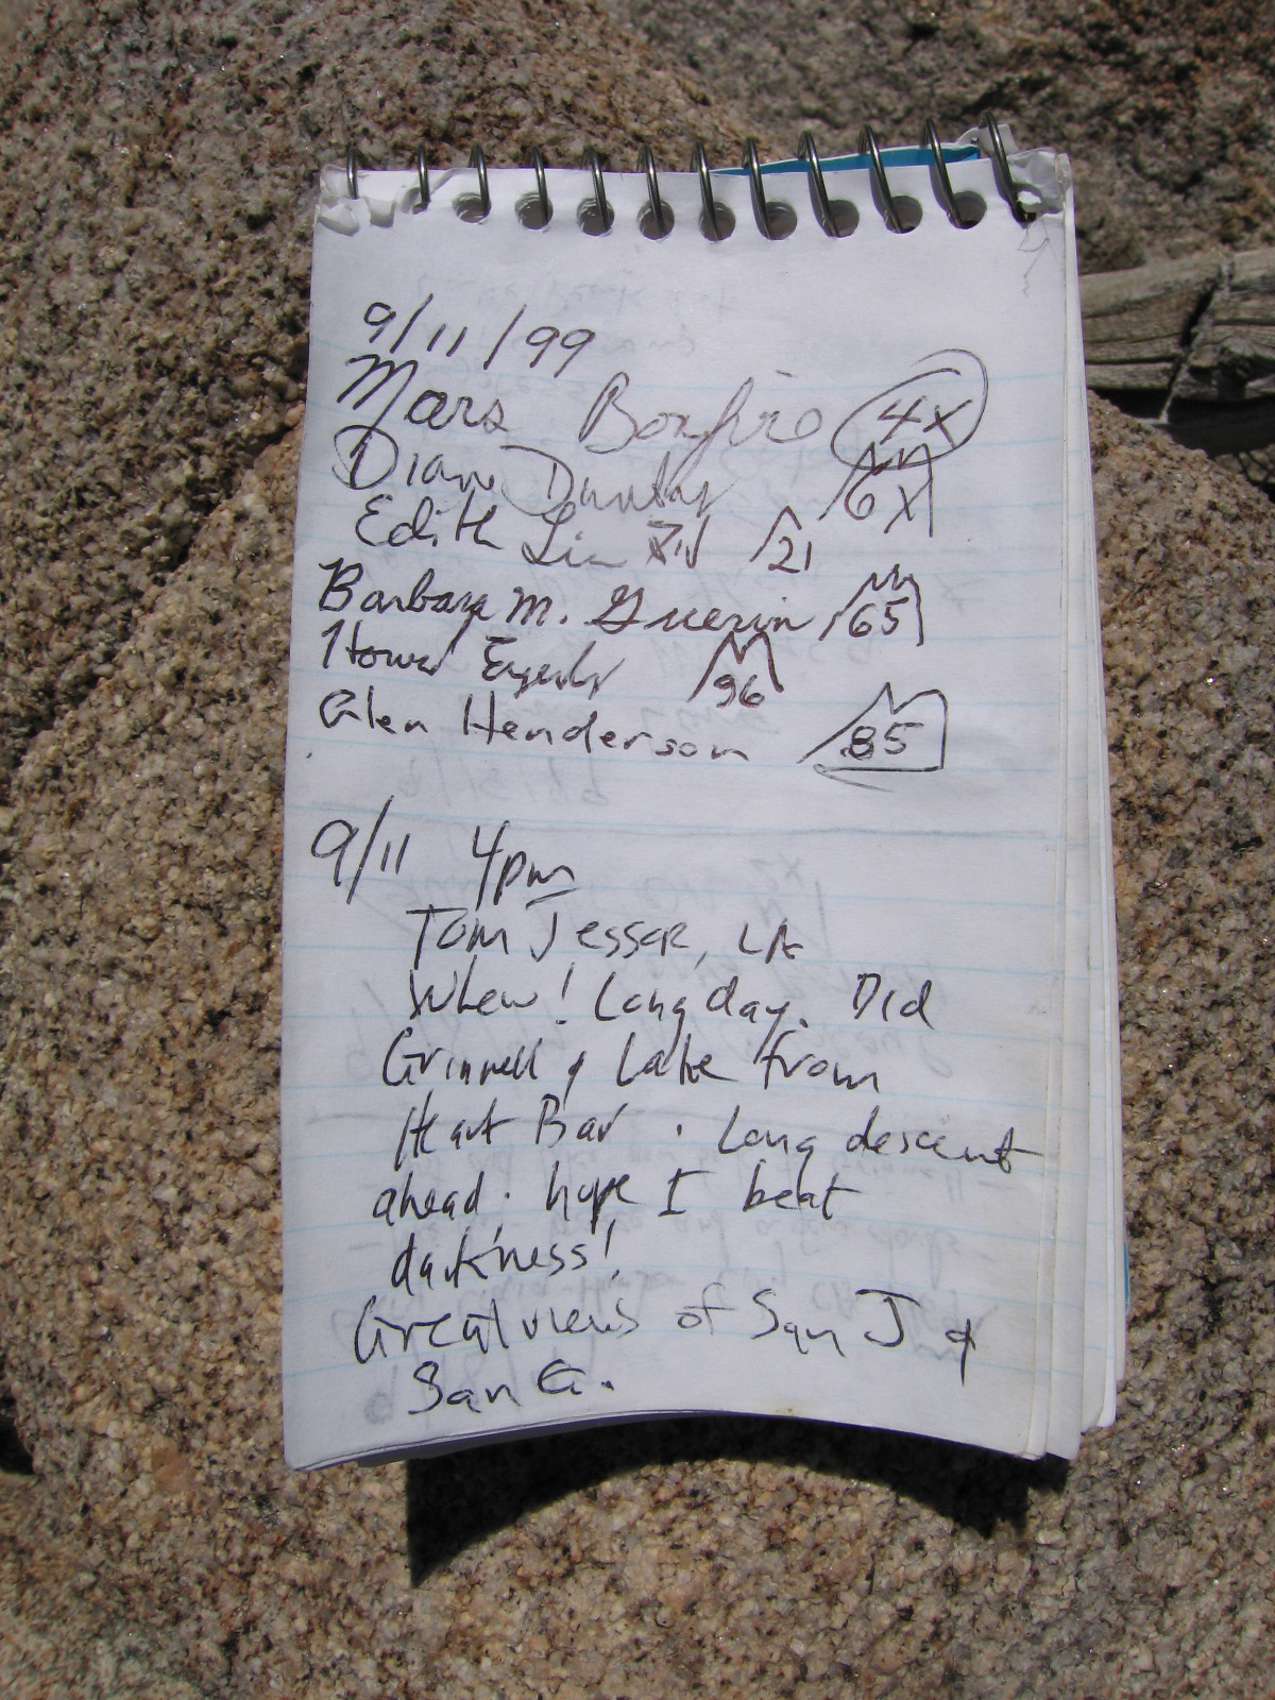 9/11/99
Mars Bonfire 4x
Diane Dunbar 6X
Edith Liu 21
Barbara M. Guerin 65
Howard 96
Glen Henderson 85
9/11 4pm
Tom Jessor, LA
Whew! Long day. Did
Grinnell & Lake from
Heart Bar. Long descent
ahead. hope I beat
darkness!
Great views of San J &
San G.